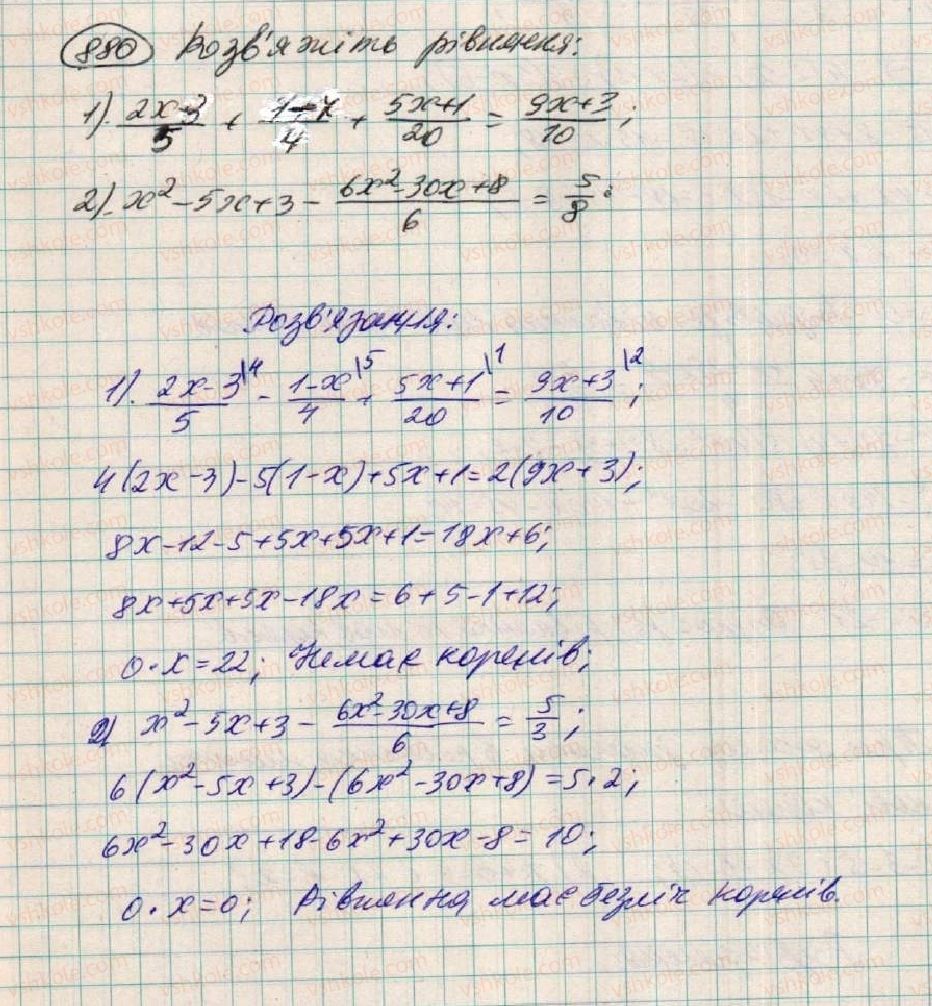 880 Розв'яжіть рівняння:
1) (2x-3)/5 + (1-x)/4 + (5x+1)/20 = (9x+3)/10;
2) x² - 5x + 3 - (6x² - 30x + 8)/6 = 5/8:
Розв'язання:
1). (2x-3)/5 \4 - (1-x)/4 \5 + (5x+1)/20 \1 = (9x+3)/10 \2;
4(2x-3)-5(1-x)+5x+1=2(9x+3);
8x-12-5+5x+5x+1=18x+6;
8x+5x+5x-18x=6+5-1+12;
0·x=22; Немає коренів;
2) x² - 5x + 3 - (6x² - 30x + 8)/6 = 5/3;
6(x²-5x+3)-(6x²-30x+8)=5·2;
6x²-30x+18-6x²+30x-8=10;
0·x=0; Рівняння має безліч коренів.
vshkole.com